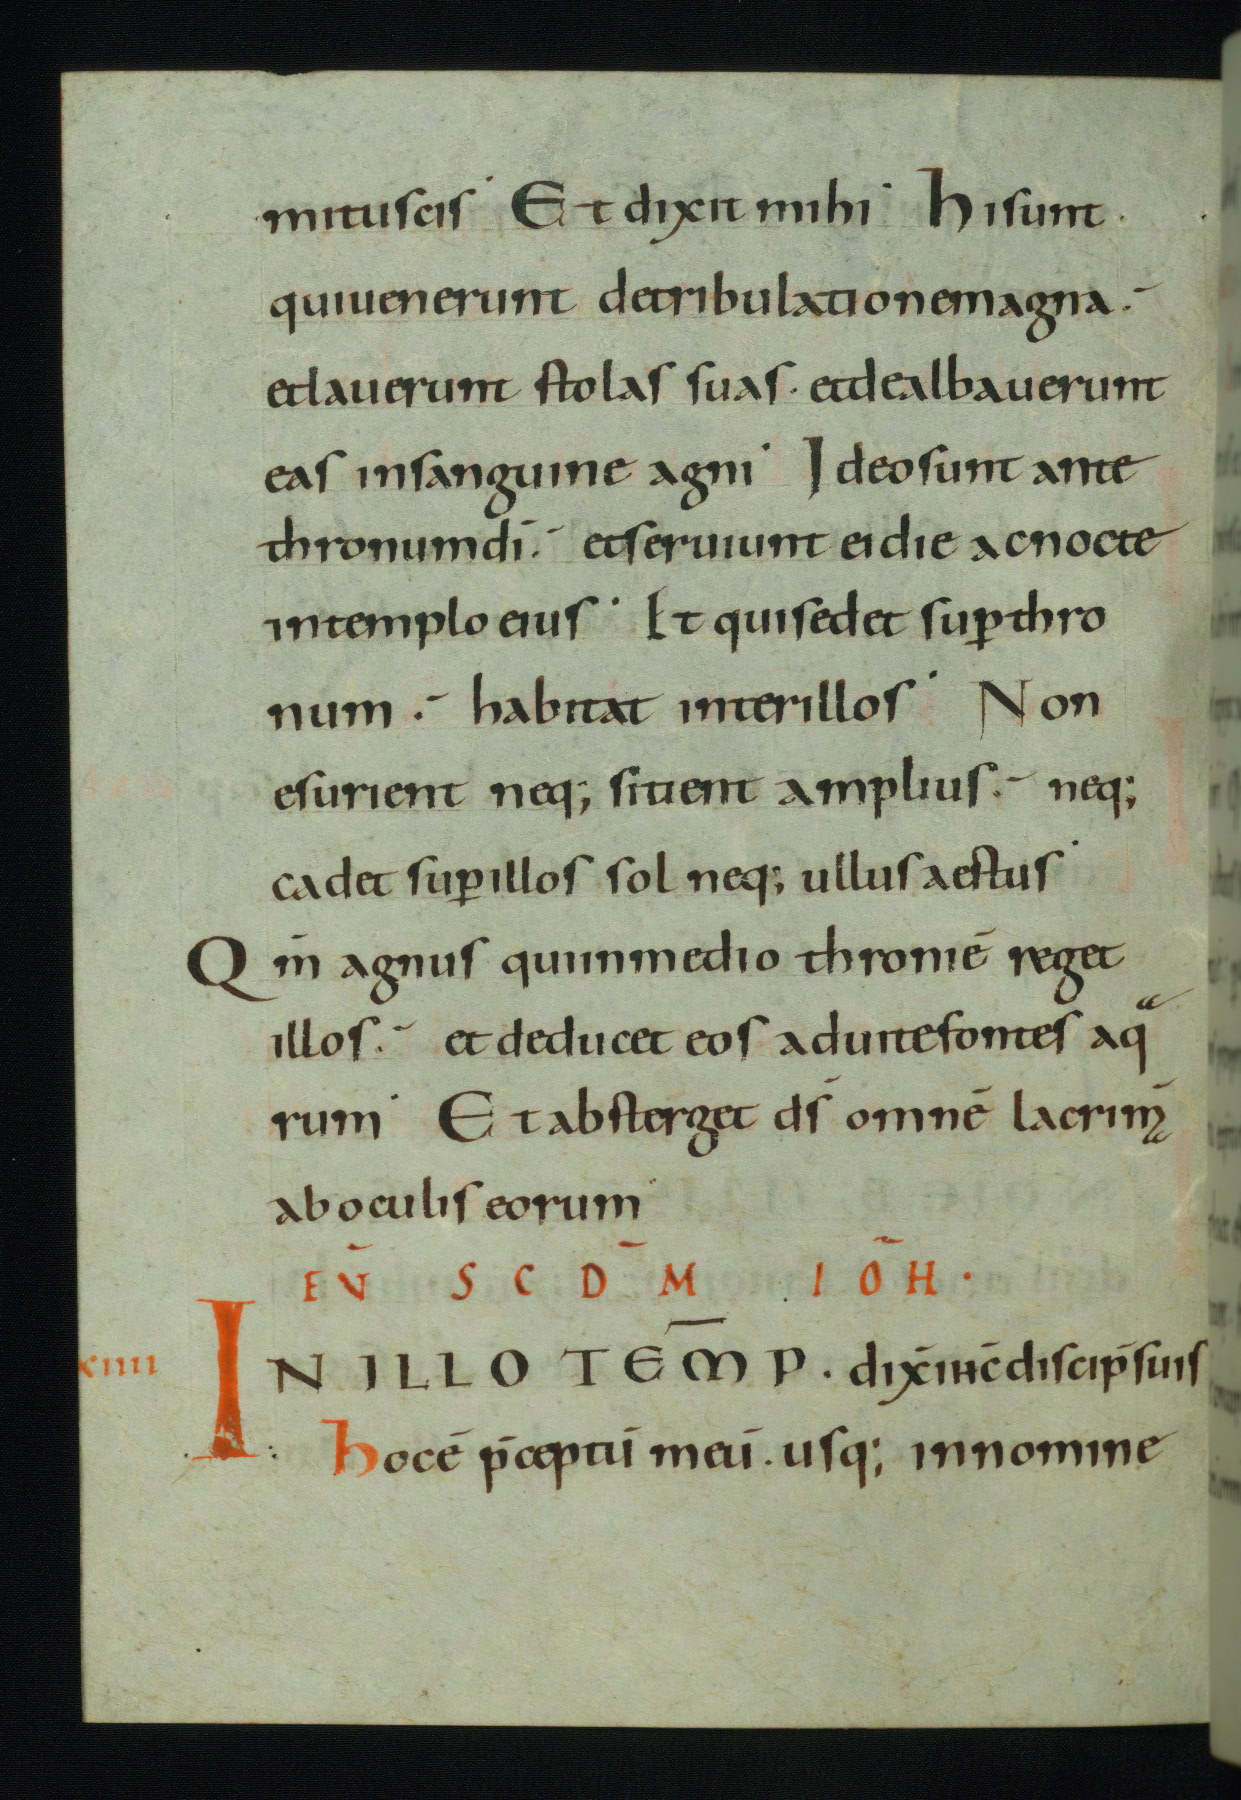 mi tu scis· Et dixit mihi· hi sunt·
qui uenerunt de tribulatione magna·
et lauerunt stolas suas· et dealbauerunt
eas in sanguine agni· Ideo sunt ante
thronum dī· et seruiunt ei die ac nocte
in templo eius· Et qui sedet suꝑ thro
num· habitat inter illos· Non
esurient neq; sitient amplius· neq;
cadet suꝑ illos sol neq; ullus aestus·
Qm̄ agnus qui in medio throni ē reget
illos· et deducet eos ad uite fontes aqͣ
rum· Et absterget d̄s omnē lacrim̄
ab oculis eorum·
EṼ SCD̄M IŌH·
xiiii IN ILLO TEM̄P· dix̄ ihc̄ discip̄ suis
hoc ē p̄ceptū meū· usq; in nomine